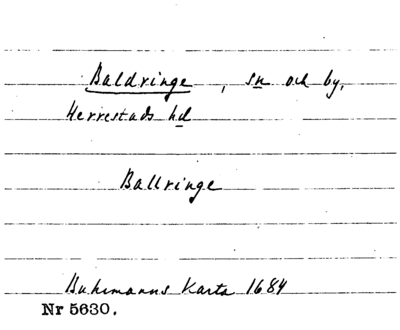 Baldringe, sn och by,
Herrestads hd
Ballringe
Buhrmanns Karta 1684
Nr 5630.